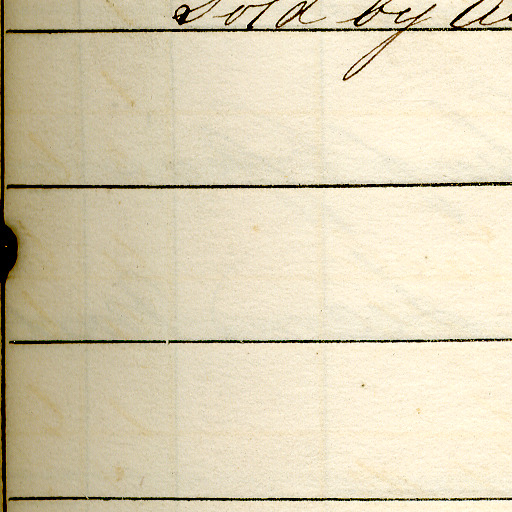 Sold by